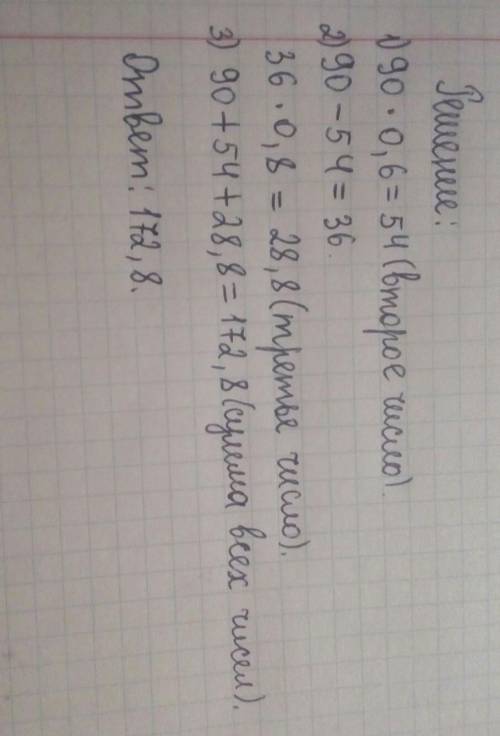 Решение:
1) 90 · 0,6 = 54 (второе число).
2) 90 - 54 = 36.
36 · 0,8 = 28,8 (третье число).
3) 90 + 54 + 28,8 = 172,8 (сумма всех чисел).
Ответ: 172,8.